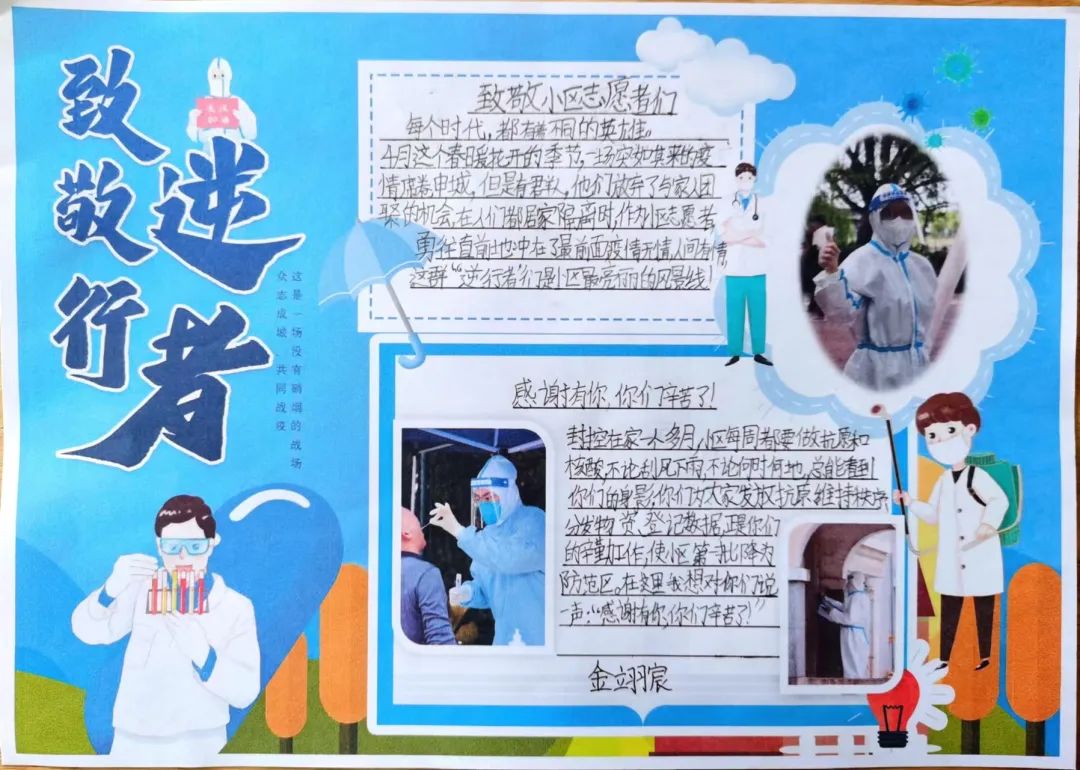 致敬
逆行者
武汉
加油
这是一场没有硝烟的战场
众志成城 共同战疫
致敬小区志愿者们
每个时代,都有着不同的英雄。
4月这个春暖花开的季节,一场突如其来的疫
情席卷申城,但是有群人,他们放弃了与家人团
聚的机会,在人们都居家隔离时,作为小区志愿者,
勇往直前地冲在了最前面疫情无情,人间有情
这群“逆行者”们是小区最亮丽的风景线!
感谢有你,你们辛苦了!
封控在家一个多月,小区每周都要做抗原和
核酸,不论刮风下雨,不论何时何地,总能看到
你们的身影,你们为大家发放抗原,维持秩序,
分发物资、登记数据,是你们
的辛勤工作,使小区第一批降为
防范区,在这里我想对你们说
一声:“感谢有你,你们辛苦了!”
金立羽宸